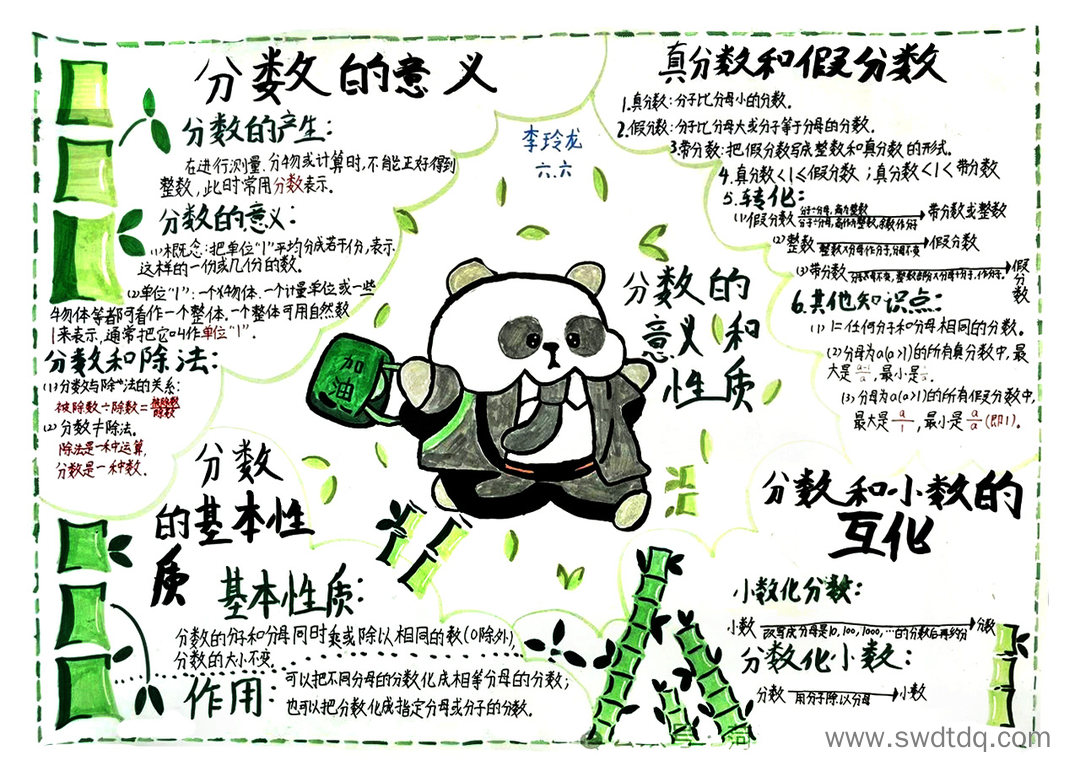 分数的意义
分数的产生:
在进行测量.分物或计算时,不能正好得到
整数,此时常用分数表示.
分数的意义:
(1)概念:把单位"1"平均分成若干份,表示
这样的一份或几份的数.
(2)单位"1":一个物体.一个计量单位或一些
物体等都可看作一个整体.一个整体可用自然数
1来表示,通常把它叫作单位"1".
分数和除法:
(1)分数与除法的关系:
被除数÷除数=被除数/除数
(2)分数≠除法.
除法是一种运算,
分数是一种数.
李玲龙
六.六
真分数和假分数
1.真分数:分子比分母小的分数.
2.假分数:分子比分母大或分子等于分母的分数.
3.带分数:把假分数写成整数和真分数的形式.
4.真分数<1≤假分数;真分数<1<带分数
5.转化:
(1)假分数 分子÷分母,商为整数 带分数或整数
(2)整数 整数×分母作分子,分母不变 假分数
(3)带分数 假分数
6.其他知识点:
(1)1=任何分子和分母相同的分数.
(2)分母为a(a>1)的所有真分数中,最
大是a-1/a,最小是
(3)分母为a(a>1)的所有假分数中,
最大是a/1,最小是a/a(即1).
加油
分数的
意义和
性质
分数
的基本性
质
基本性质:
分数的分子和分母同时乘或除以相同的数(0除外),
分数的大小不变.
作用:
可以把不同分母的分数化成相等分母的分数;
也可以把分数化成指定分母或分子的分数.
分数和小数的
互化
小数化分数:
小数 改写成分母是10,100,1000,…的分数后再约分 分数
分数化小数:
分数 用分子除以分母 小数
www.swdtdq.com